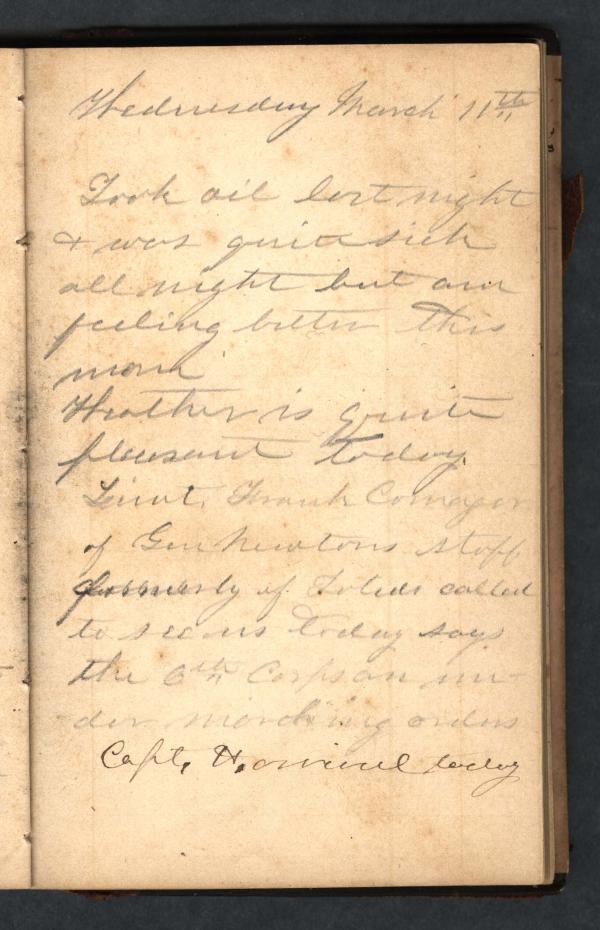 Wednesday March 11th
Took oil last night
& was quite sick
all night but am
feeling better this
morn
Weather is quite
pleasant today
Lieut. Frank Comager
of Gen Newtons staff
formerly of Toledo called
to see us today says
the 6th Corps are un-
der marching orders
Capt. H. arrived today